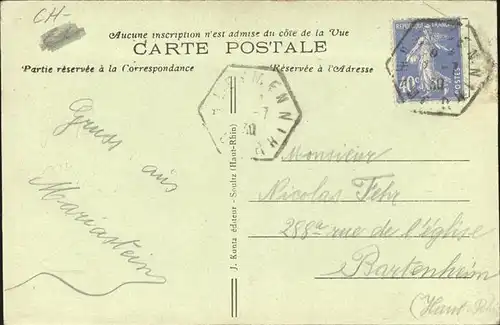 CH-
Aucune inscription n'est admise du côté de la Vue
CARTE POSTALE
Partie réservée à la Correspondance
Réservée à l'Adresse
REPUBLIQUE FRANÇAISE
40c
POSTES
-7
30
Gruss aus
Mariastein
J. Kuntz éditeur - Soultz (Haut-Rhin)
Monsieur
Nicolas Fehr
rue de l'église
Bartenheim
(Haut-Rh